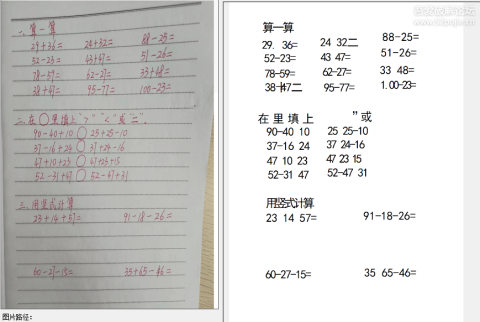 一、算一算
29+36= 24+32= 88-25=
52-23= 43+47= 51-26=
78-59= 62-27= 33+48=
38+47= 95-77= 100-23=
二、在○里填上">""<"或"="。
90-40+10○25+25-10
37-16+24○37+24-16
47+10+23○47+23+15
52-31+47○52-47+31
三、用竖式计算
23+14+57= 91-18-26=
60-27-15= 35+65-46=
图片路径:
算一算
29. 36= 24 32二 88-25=
52-23= 43 47= 51-26=
78-59= 62-27= 33 48=
38-┼47二 95-77= 1.00-23=
在 里 填 上 ”或
90-40 10 25 25-10
37-16 24 37 24-16
47 10 23 47 23 15
52-31 47 52-47 31
用竖式计算
23 14 57= 91-18-26=
60-27-15= 35 65-46=